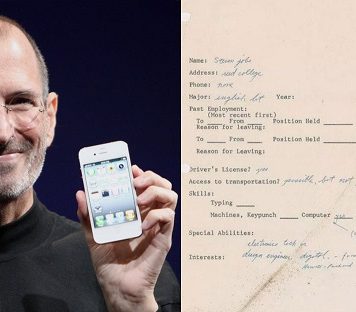 Name: Steven jobs
Address: reed college
Phone: none
Major: english lit Year:
Past Employment:
(Most recent first)
To From Position Held
Reason for leaving:
To From Position Held
Reason for Leaving:
Driver's License? yes
Access to transportation? possible, but not
Skills:
Typing
Machines, Keypunch Computer yes
Special Abilities:
electronics tech or
Interests: design engineer, digital. -
Hewitt-Packard